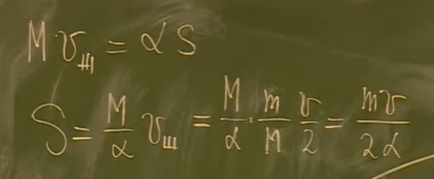 M v_щ = α S
S = M/α v_ш = M/α · m/M v/2 = mv/2α